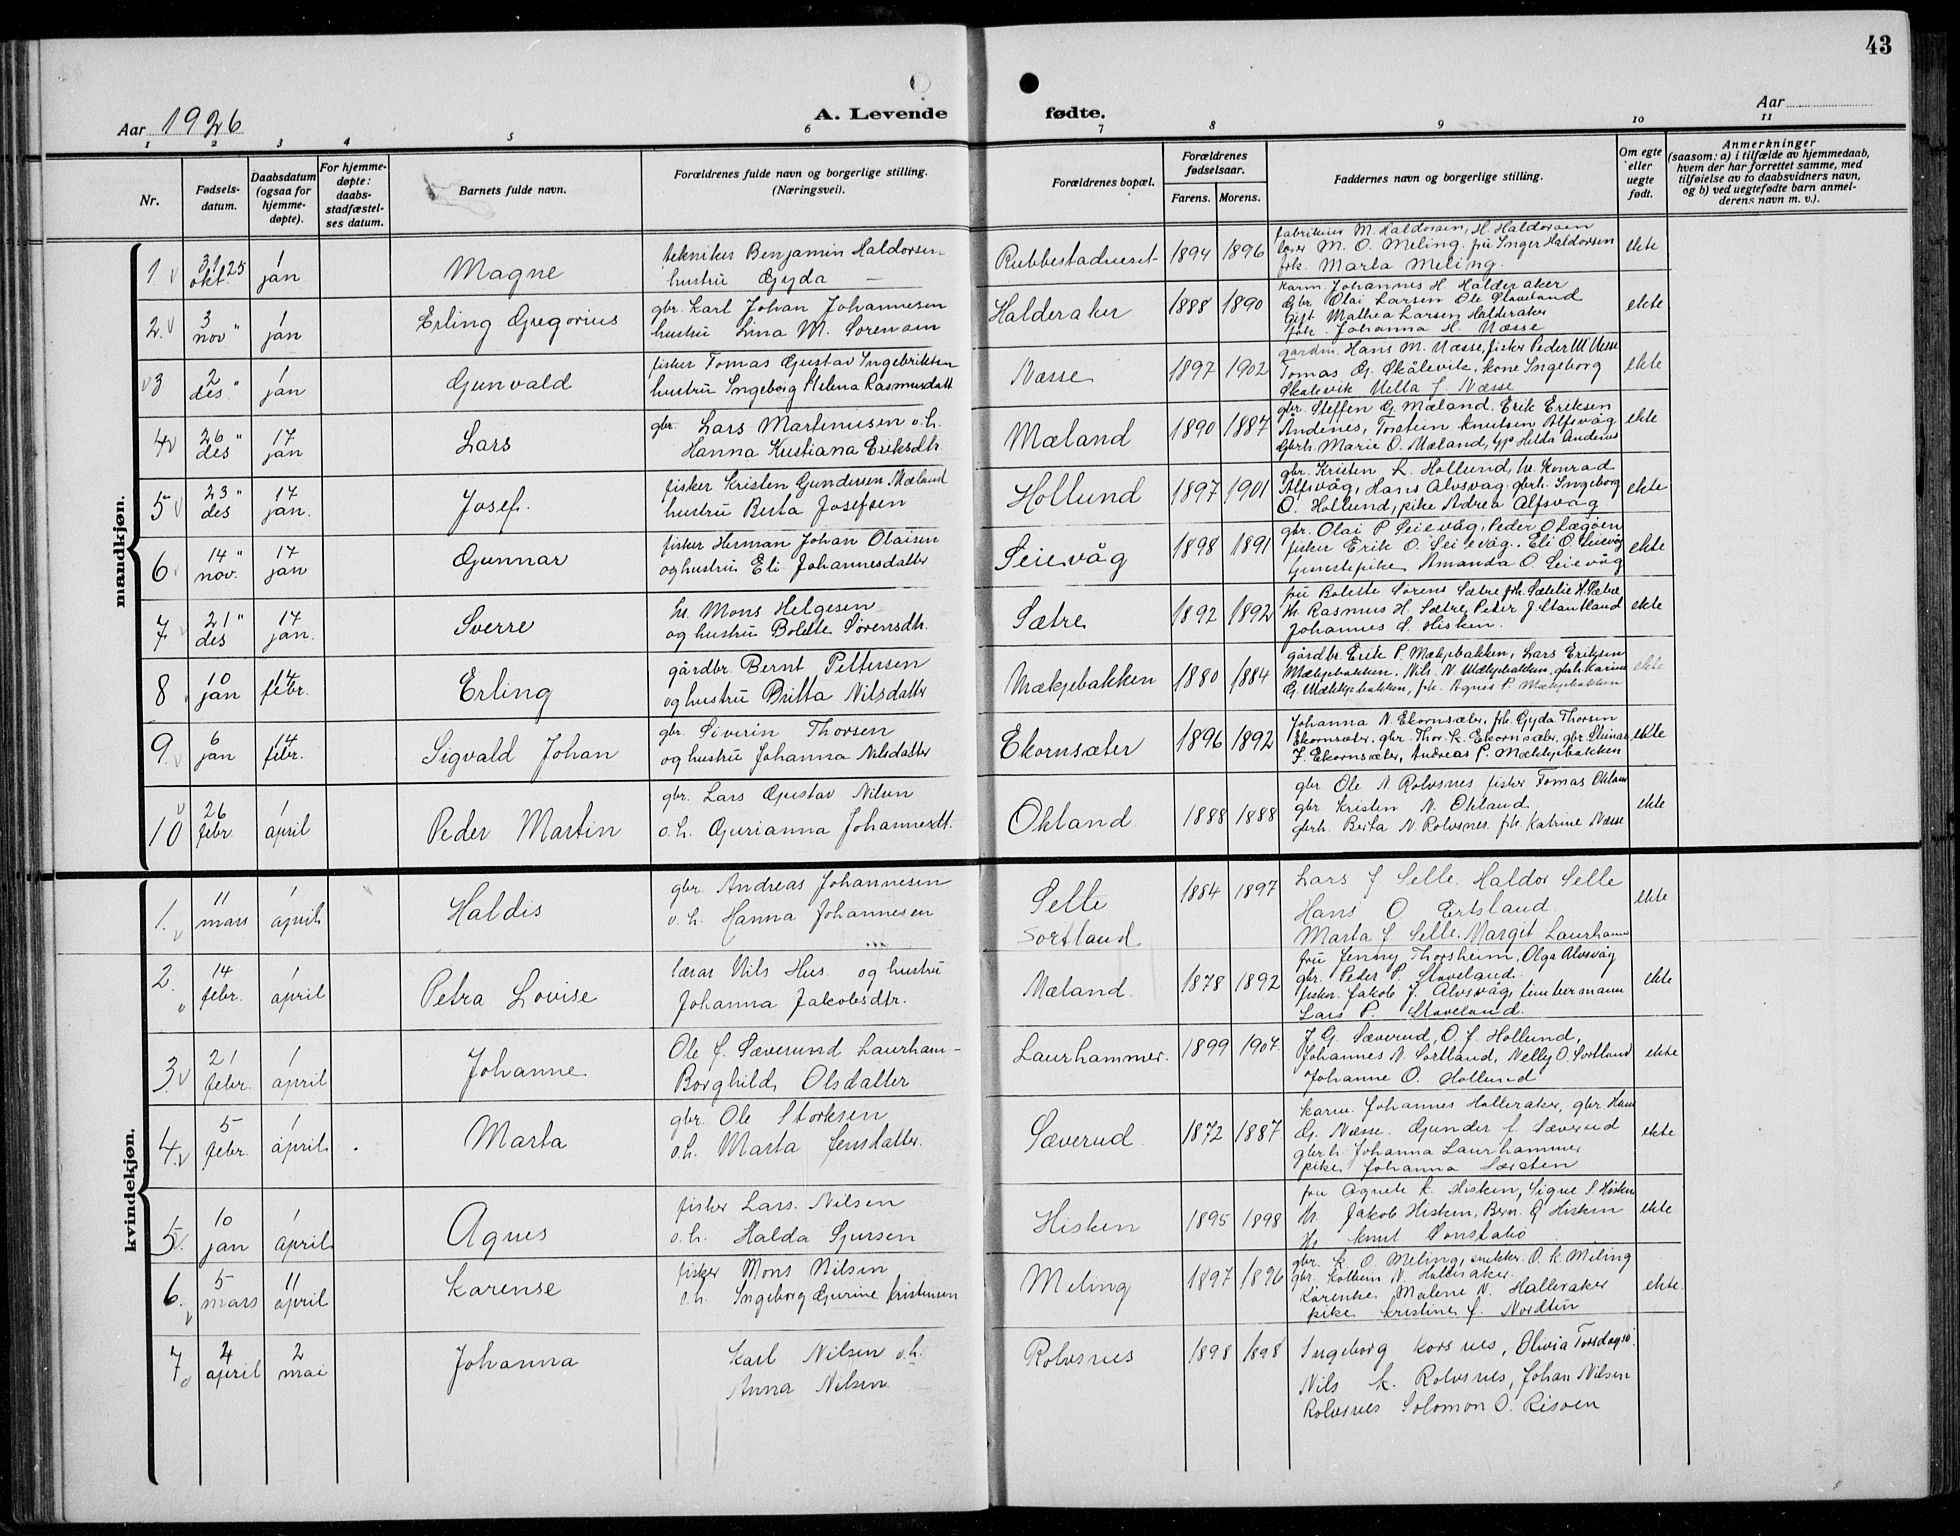 43
Aar 1926
A. Levende
fødte.
Aar
1 2 3 4 5 6 7 8 9 10 11
Nr.
Fødsels-
datum.
Daabsdatum
(ogsaa for
hjemme-
døpte).
For hjemme-
døpte:
daabs-
stadfæstel-
ses datum.
Barnets fulde navn.
Forældrenes fulde navn og borgerlige stilling.
(Næringsvei).
Forældrenes bopæl.
Forældrenes
fødselsaar.
Farens. Morens.
Faddernes navn og borgerlige stilling.
Om egte
eller
uegte
født.
Anmerkninger
(saasom: a) i tilfælde av hjemmedaab,
hvem der har forrettet samme, med
tilføielse av to daabsvidners navn,
og b) ved uegtefødte barn anmel-
derens navn m. v.).
mandkjøn.
1. 31 okt. 25 1 jan Magne
tekniker Benjamin Haldorsen
hustru Gyda —
Rubbestadneset 1894 1896
fabrikeier M. Haldorsen, H. Haldorsen
lærer M. O. Meling. fru Inger Haldorsen
frk. Marta Meling.
ekte
2. 3 nov " 1 jan Erling Gregorius
gbr. Karl Johan Johannesen
hustru Lina M. Sørensen
Halderaker 1888 1890
karm. Johannes H Halderaker
Gbr. Olai Larsen Ole Staveland
Gift Mathea Larsen Halderaker
frk. Johanna H. Næsse
ekte
3 2 des. " 1 jan Gunvald
fisker Tomas Gustav Ingebriktsen
hustru Ingeborg Helena Rasmusdatt
Næsse 1897 1902
gardm. Hans M. Næsse, fisker Peder M Næsse
Tomas G. Skålevik, kone Ingeborg
Skålevik J. Næsse
ekte
4 26 des " 17 jan Lars
gbr. Lars Martinusen o.h.
Hanna Kristiana Eriksdtr.
Mæland 1890 1887
gbr. Steffen G. Mæland. Erik Eriksen
Andenes, Torstein Knutsen Alfsvåg
Gbrh. Marie O. Mæland, Helda Andenes
ekte
5 23 des " 17 jan. Josef.
fisker Kristen Gundersen Mæland
hustru Berta Josefsen
Hollund 1897 1901
gbr. Kristen L. Hollund, hr. Konrad
Alfsvåg, Hans Alvsvåg. gbrh. Ingeborg
O. Hollund, pike Andrea Alfsvåg
ekte
6 14 nov. " 17 jan Gunnar
fisker Herman Johan Olaisen
og hustru Eli Johannesdatter
Seievåg 1898 1891
gbr. Olai P Seievåg, Peder O Lægøen
fisker Erik O. Seievåg. Eli O. Seievåg
tjenestepike Amanda O. Seievåg
ekte
7 21 des " 17 jan. Sverre
hr. Mons Helgesen
og hustru Bolette Sørensdtr.
Sætre 1892 1892
fru Bolette Sørens Sætre frk. H. Sætre
hr. Rasmus H. Sætre, Peter J. Stautland
Johannes S. Hisken.
ekte
8 10 jan 14 febr. Erling
gårdbr. Bernt Pettersen
og hustru Britta Nilsdatter
Mækjebakken 1880 1884
gårdbr. Erik P. Mækjebakken, Lars Eriksen
Mækjebakken. Nils N. Mækjebakken, gbrh. Karine
G. Mækkjebakken, frk. Agnes P. Mækjebakken
ekte
9. 6 jan 14 febr. Sigvald Johan
gbr. Siverin Thorsen
og hustru Johanna Nilsdatter
Ekornsæter 1896 1892
Johanna N. Ekornsæter, frk. Gyda Thorsen
Ekornsæter, gbr. Thor K. Ekornsæter, gbr. Steinar
J. Ekornsæter, Andreas P. Mækkjebakken
ekte
10 26 febr. 1 april Peder Martin
gbr. Lars Gustav Nilsen
o. h. Gurianna Johannesdt.
Økland 1888 1888
gbr. Ole N Rolvsnes fisker Tomas Økland
gbr Kristen N. Økland
gbrh. Berta N. Rolvsnes. frk. Katrine Næsse
ekte
kvindekjøn.
1. 11 mars 1 april Haldis
gbr. Andreas Johannesen
o. h. Hanna Johannesen
Selle
Sortland 1884 1897
Lars J. Selle. Haldor Selle
Hans O. Ertsland.
Marta J Selle. Margit Laurham
ekte
2. 14 febr. 1 april Petra Lovise
lærar Nils Hus og hustru
Johanna Jakobsdtr.
Mæland 1878 1892
fru Jenny Thorsheim, Olga Alvsvåg
gbr. Peder P. Staveland.
fisker. Jakob J. Alvsvåg, timbermann
Lars P. Staveland.
ekte
3. 21 febr. 1 april Johanne
Ole J. Sæverund Laurham—
Borghild Olsdatter
Laurhammer. 1899 1907.
J. G. Sæverud, O. J. Hollund,
Johannes N. Sortland, Nelly O. Sortland
Johanne O. Hollund
ekte
4 5 febr. 1 april Marta
gbr. Ole Storksen
o. h. Marta Jensdatter.
Sæverud. 1872 1887
karm. Johannes Halleraker, gbr Hans
G. Næsse. Gunder J. Sæverud
gbrh. Johanna Laurhammer
pike Johanna Særsten
ekte
5. 10 jan 1 april Agnes
fisker Lars. Nilsen
o. h. Halda Sjursen
Hisken 1895 1898
fru Agnete K. Hisken, Signe S. Hisken
Hr. Jakob Hisken, Bern. G Hisken
Hr Knut Vonstabø
ekte
6. 5 mars 11 april Karense
fisker Mons Nilsen
o. h. Ingeborg Gurine Kristensen
Meling 1897 1896
gbr. K. O. Meling, snikker. O. K. Meling
gbr. Kolbein N. Halleraker
Karense Malene N. Halleraker
pike Kristine J. Nordtun
ekte.
7 4 april 2 mai Johanna
Karl Nilsen o.h.
Anna Nilsen
Rolvsnes 1898 1898
Ingeborg Korsnes, Olivia Torsdagsø.
Nils K. Rolvsnes, Johan Nilsen
Rolvsnes Solomon O. Risøen